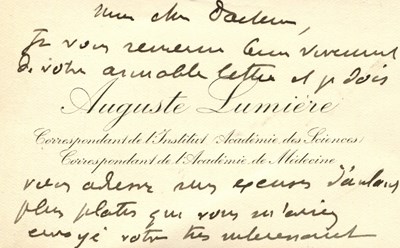 Mon cher Docteur,
Je vous remercie bien vivement
de votre aimable lettre et je dois
Auguste Lumière
Correspondant de l'Institut (Académie des Sciences)
Correspondant de l'Académie de Médecine
vous adresser mes excuses d'autant
plus plates que vous m'aviez
envoyé votre très intéressant